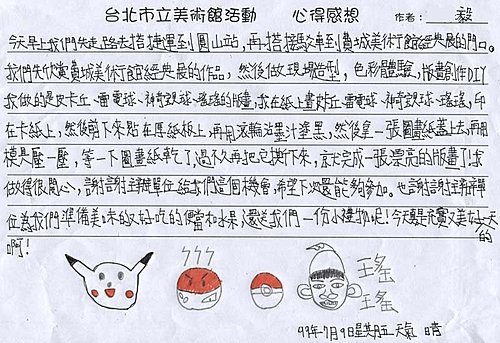 台北市立美術館活動 心得感想 作者：毅
今天早上我們先走路去搭捷運到圓山站，再搭接駁車到費城美術館經典展的門口。
我們先欣賞費城美術館經典展的作品，然後做現場造型，色彩體驗，版畫創作DIY
我做的是皮卡丘、雷電球、神奇寶貝球、瑤瑤的版畫，我在紙上畫皮卡丘、雷電球、神奇寶貝球、瑤瑤，印
在卡紙上，然後剪下來貼在厚紙板上，再用滾輪沾墨汁塗黑，然後拿一張圖畫紙蓋上去，再用
模具壓一壓，等一下圖畫紙乾了，過不久再把它撕下來，就完成一張漂亮的版畫了！我
做得很開心，謝謝主辦單位給我們這個機會，希望下次還能夠參加。也謝謝主辦單
位為我們準備美味的又好吃的便當和水果，還送我們一份小禮物呢！今天真是充實又美好的一天
啊！
瑤
瑤
99年7月9日星期五 天氣 晴